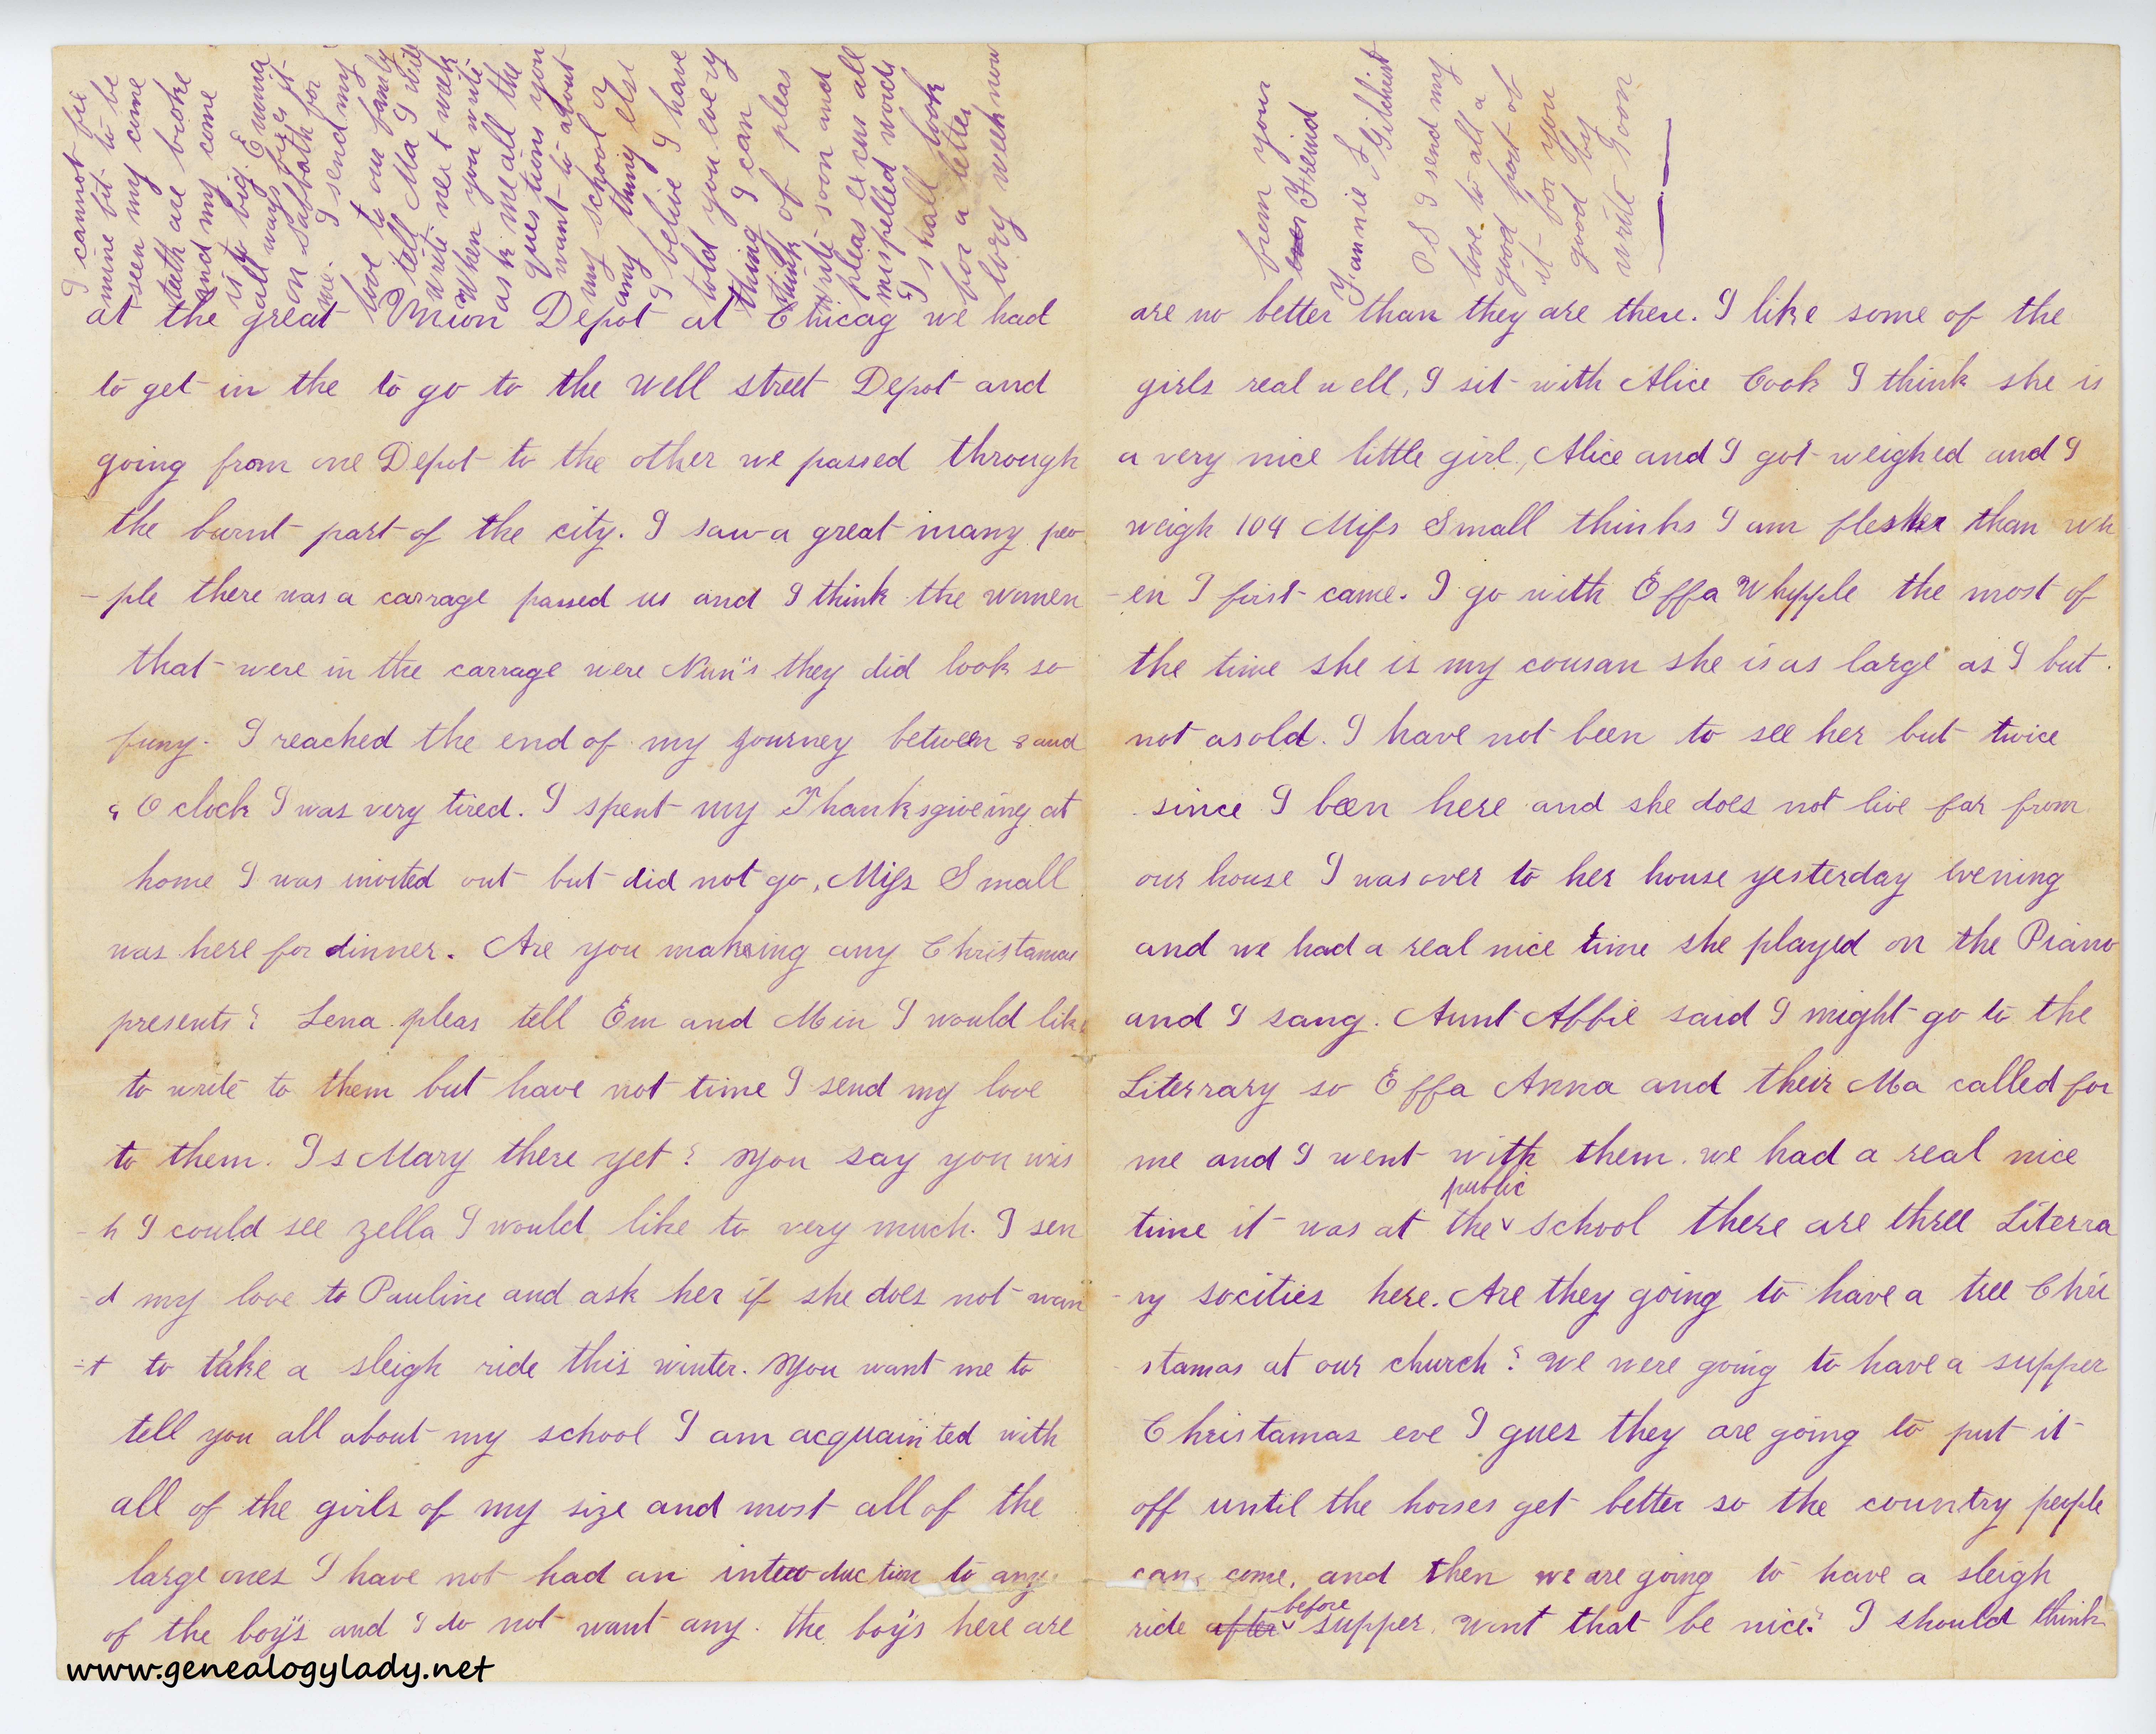 at the great Union Depot at Chicag we had
to get in the to go to the well street Depot and
going from one Depot to the other we passed through
the burnt part of the city. I saw a great many peo
-ple there was a carrage passed us and I think the women
that were in the carrage were Nun's they did look so
funy. I reached the end of my journey between 8 and
9 O clock I was very tired. I spent my Thanksgiveing at
home I was invited out but did not go, Miss Small
was here for dinner. Are you makeing any Christamas
presents? Lena pleas tell Em and Min I would like
to write to them but have not time I send my love
to them. Is Mary there yet? You say you wis
-h I could see Zella I would like to very much. I sen
-d my love to Pauline and ask her if she does not wan
-t to take a sleigh ride this winter. You want me to
tell you all about my school I am acquainted with
all of the girls of my size and most all of the
large ones I have not had an introduction to any
of the boy's and I do not want any. the boy's here are
are no better than they are there. I like some of the
girls real well, I sit with Alice Cook I think she is
a very nice little girl, Alice and I got weighed and I
weigh 104 Miss Small thinks I am flesher than wh
-en I first came. I go with Effa Whipple the most of
the time she is my cousan she is as large as I but
not as old. I have not been to see her but twice
since I been here and she does not live far from
our house I was over to her house yesterday evening
and we had a real nice time she played on the Piano
and I sang. Aunt Abbie said I might go to the
Literrary so Effa Anna and their Ma called for
me and I went with them. we had a real nice
time it was at the public school there are three Literra
-ry socities here. Are they going to have a tree Chri
stamas at our church? We were going to have a supper
Christamas eve I gues they are going to put it
off until the horses get better so the country people
can come, and then we are going to have a sleigh
ride after before supper. Wont that be nice? I should think
I cannot fix
mine bit to be
seen my come
teeth are broke
and my come
is to big. Emma
allways fixes it
on Sabbath for
me. I send my
love to our family
tell Ma I will
write next week
When you write
ask me all the
questions you
want to about
my school or
any thing else
I belive I have
told you every
thing I can
think of pleas
write soon and
pleas excus all
mispelled words
I shall look
for a letter
every week now
from your
Freind
Fannie F Gilchrist
PS I send my
love to all a
good part of
it for you
good by
write soon
www.genealogylady.net